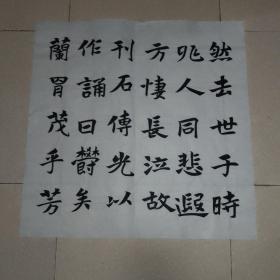 然去世于時
兆人同悲遐
方悽長泣故
刊石傳光以
作誦曰欝矣
蘭胃茂乎芳